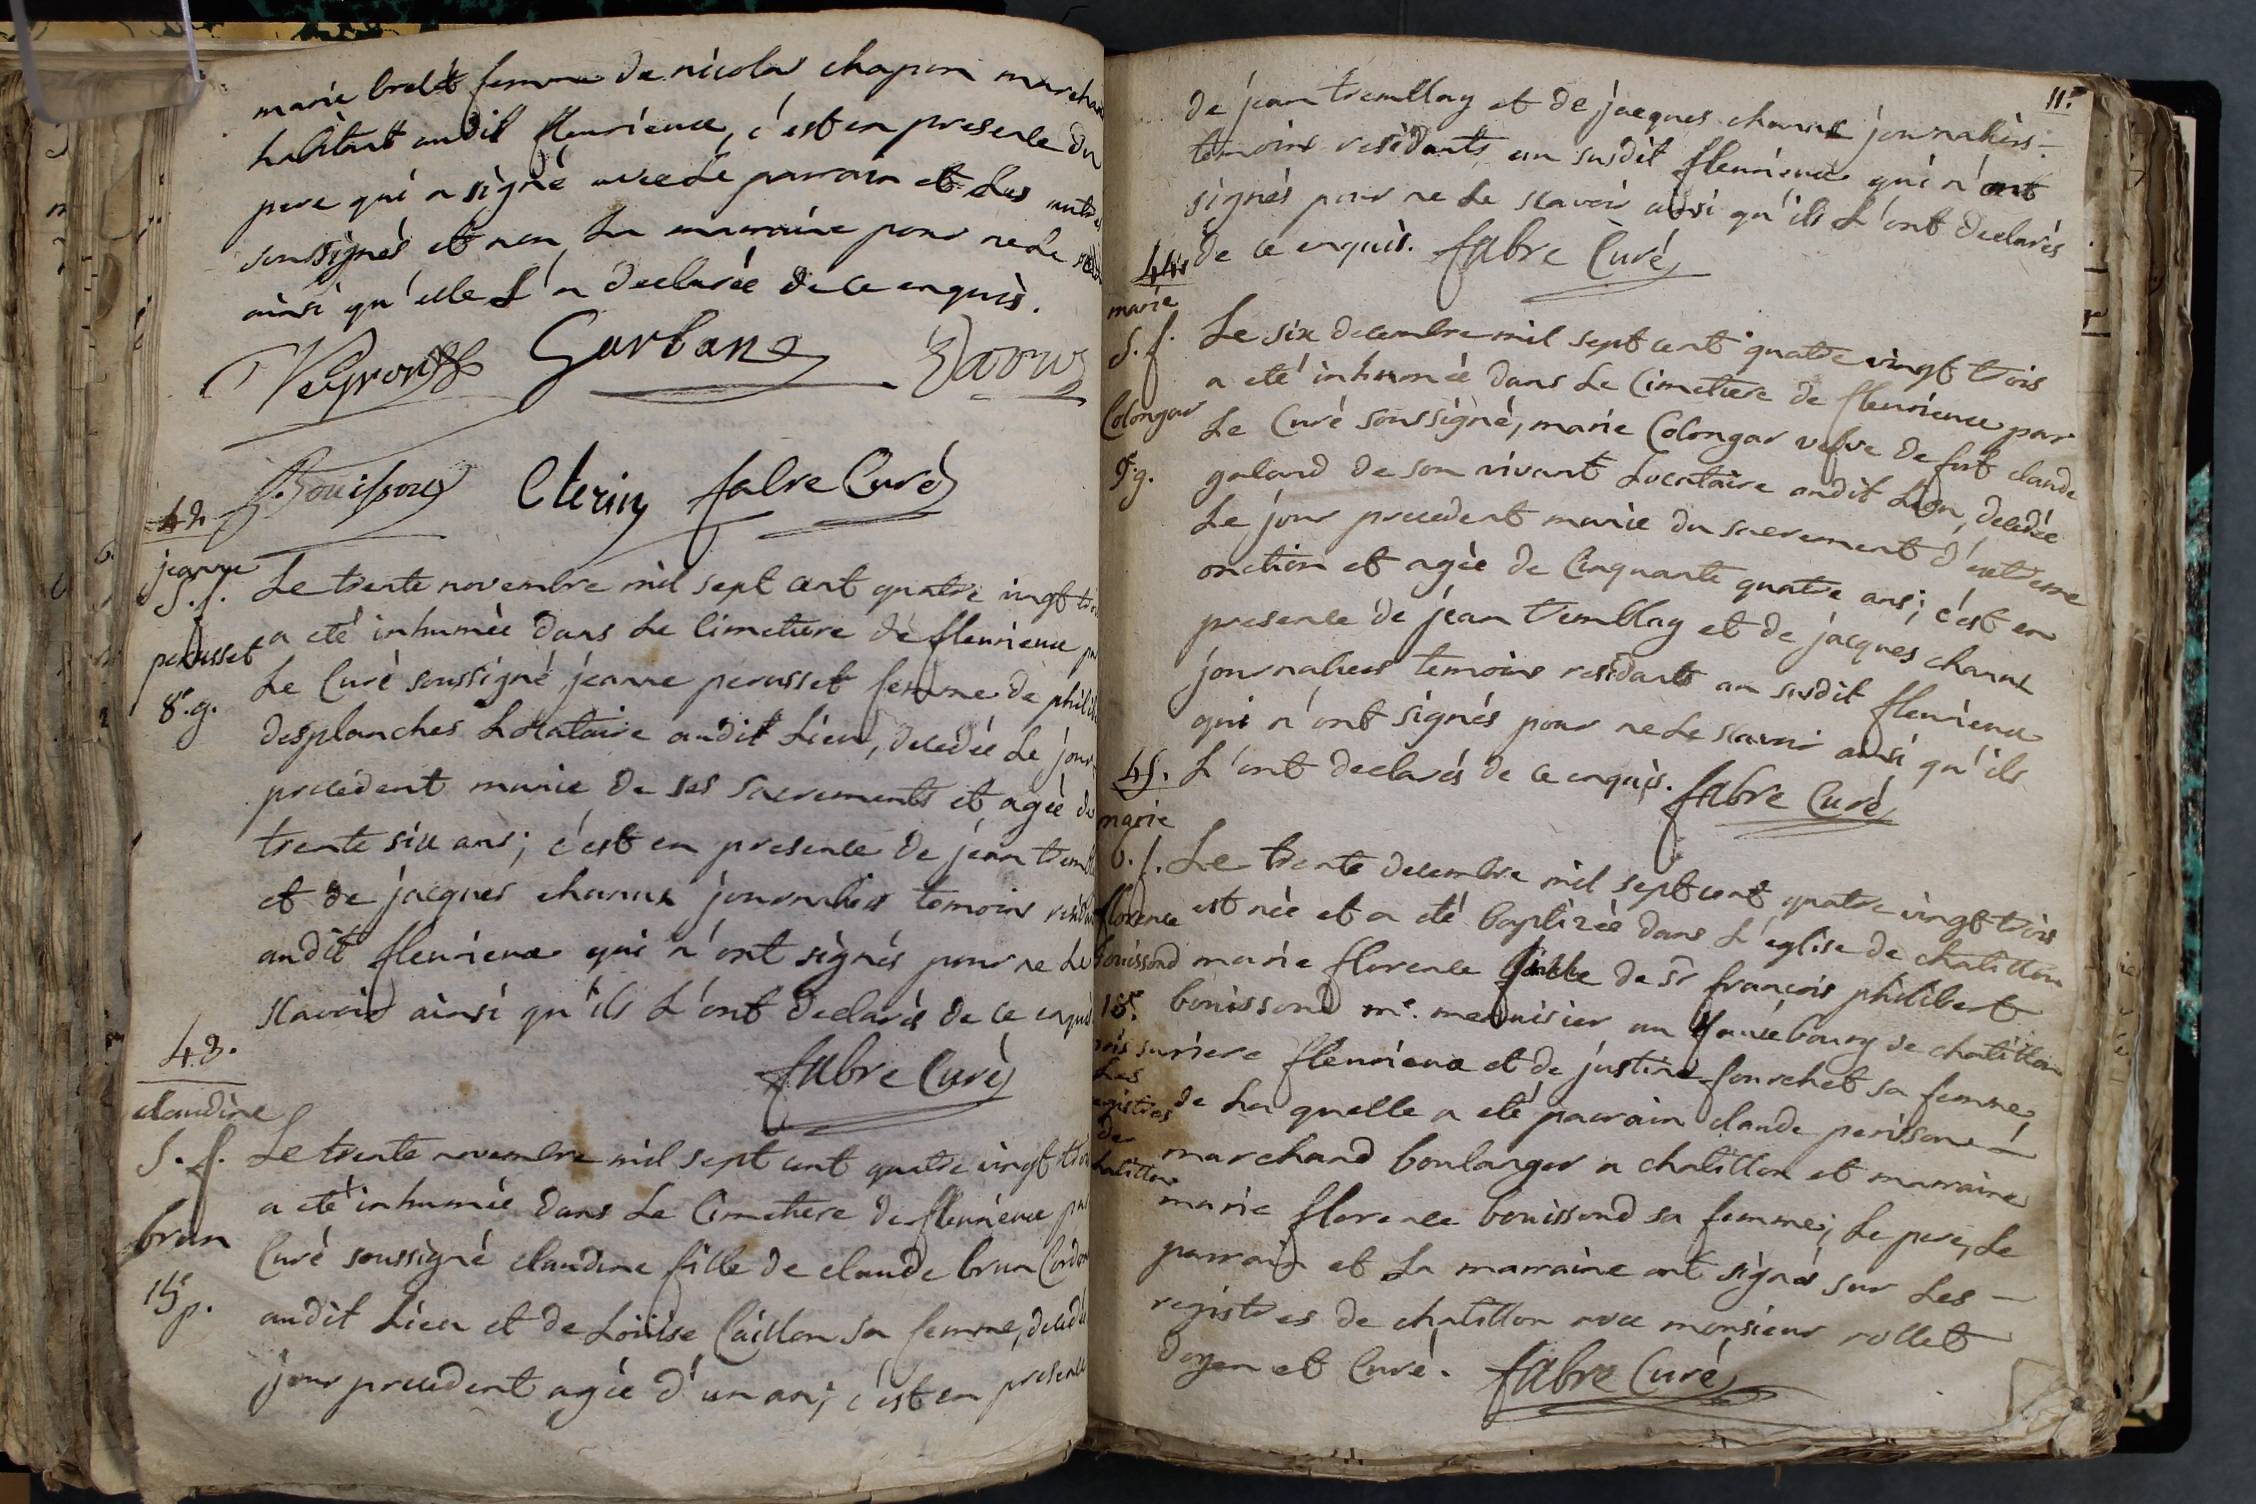 marie brelet femme de nicolas chapon marchand
habitant audit fleurieux, c'est en presence du
pere qui a signé avec le parrain et les autres
soussignés et non la marraine pour ne le
ainsi qu'elle L'a declarée de ce enquis.
Garban
Bouissoud Clerin fabre Curé
42
jeanne
S. f.
perusset
8.e g.
Le trente novembre mil sept cent quatre vingt
a eté inhumée dans Le Cimetiere de fleurieux
Le Curé soussigné jeanne perusset femme de
desplanches Locataire audit Lieu, decedée Le jour
precedent munie de ses sacrements et agée de
trente six ans; c'est en presence de jean
et de jacques charnat journaliers temoins
audit fleurieux qui n'ont signés pour ne Le
scavoir ainsi qu'ils L'ont declarés de ce enquis
fabre Curé
43.
claudine
S. f.
brun
15 p.
Le trente novembre mil sept cent quatre vingt
a eté inhumée dans Le Cimetiere de fleurieux
Curé soussigné claudine fille de claude brun
audit Lieu et de Louise Caillon sa femme,
jour precedent agée d'un an; c'est en presence
11.e
de jean tremblay et de jacques charnat journaliers
temoins residants au susdit fleurieux qui n'ont
signés pour ne Le scavoir ainsi qu'ils L'ont declarés
de ce enquis. fabre Curé
44
marie
S. f.
Colongar
9.e g.
Le six decembre mil sept cent quatre vingt trois
a eté inhumée dans Le Cimetiere de fleurieux par
Le Curé soussigné, marie Colongar vefve de fut claude
galand de son vivant Locataire audit Lieu, decedée
Le jour precedent munie du sacrement d'extreme
onction et agée de Cinquante quatre ans; c'est en
presence de jean tremblay et de jacques charnat
journaliers temoins residants au susdit fleurieux
qui n'ont signés pour ne Le scavoir ainsi qu'ils
L'ont declarés de ce enquis. fabre Curé
45.
marie
b. f.
florence
Bouissond
18.e
Les
registres
de
chatillon
Le trente decembre mil sept cent quatre vingt trois
est née et a eté baptizée dans L'eglise de chatillon
marie florence fille de sr françois philibert
bouissond me. menuisier au fauxbourg de chatillon
suriere fleurieux et de justine fourchet sa femme,
de La quelle a eté parrain claude perissone
marchand boulanger a chatillon et marraine
marie florence bouissond sa femme; Le pere, Le
parrain et La marraine ont signés sur Les
registres de chatillon avec monsieur rollet
doyen et Curé. fabre Curé